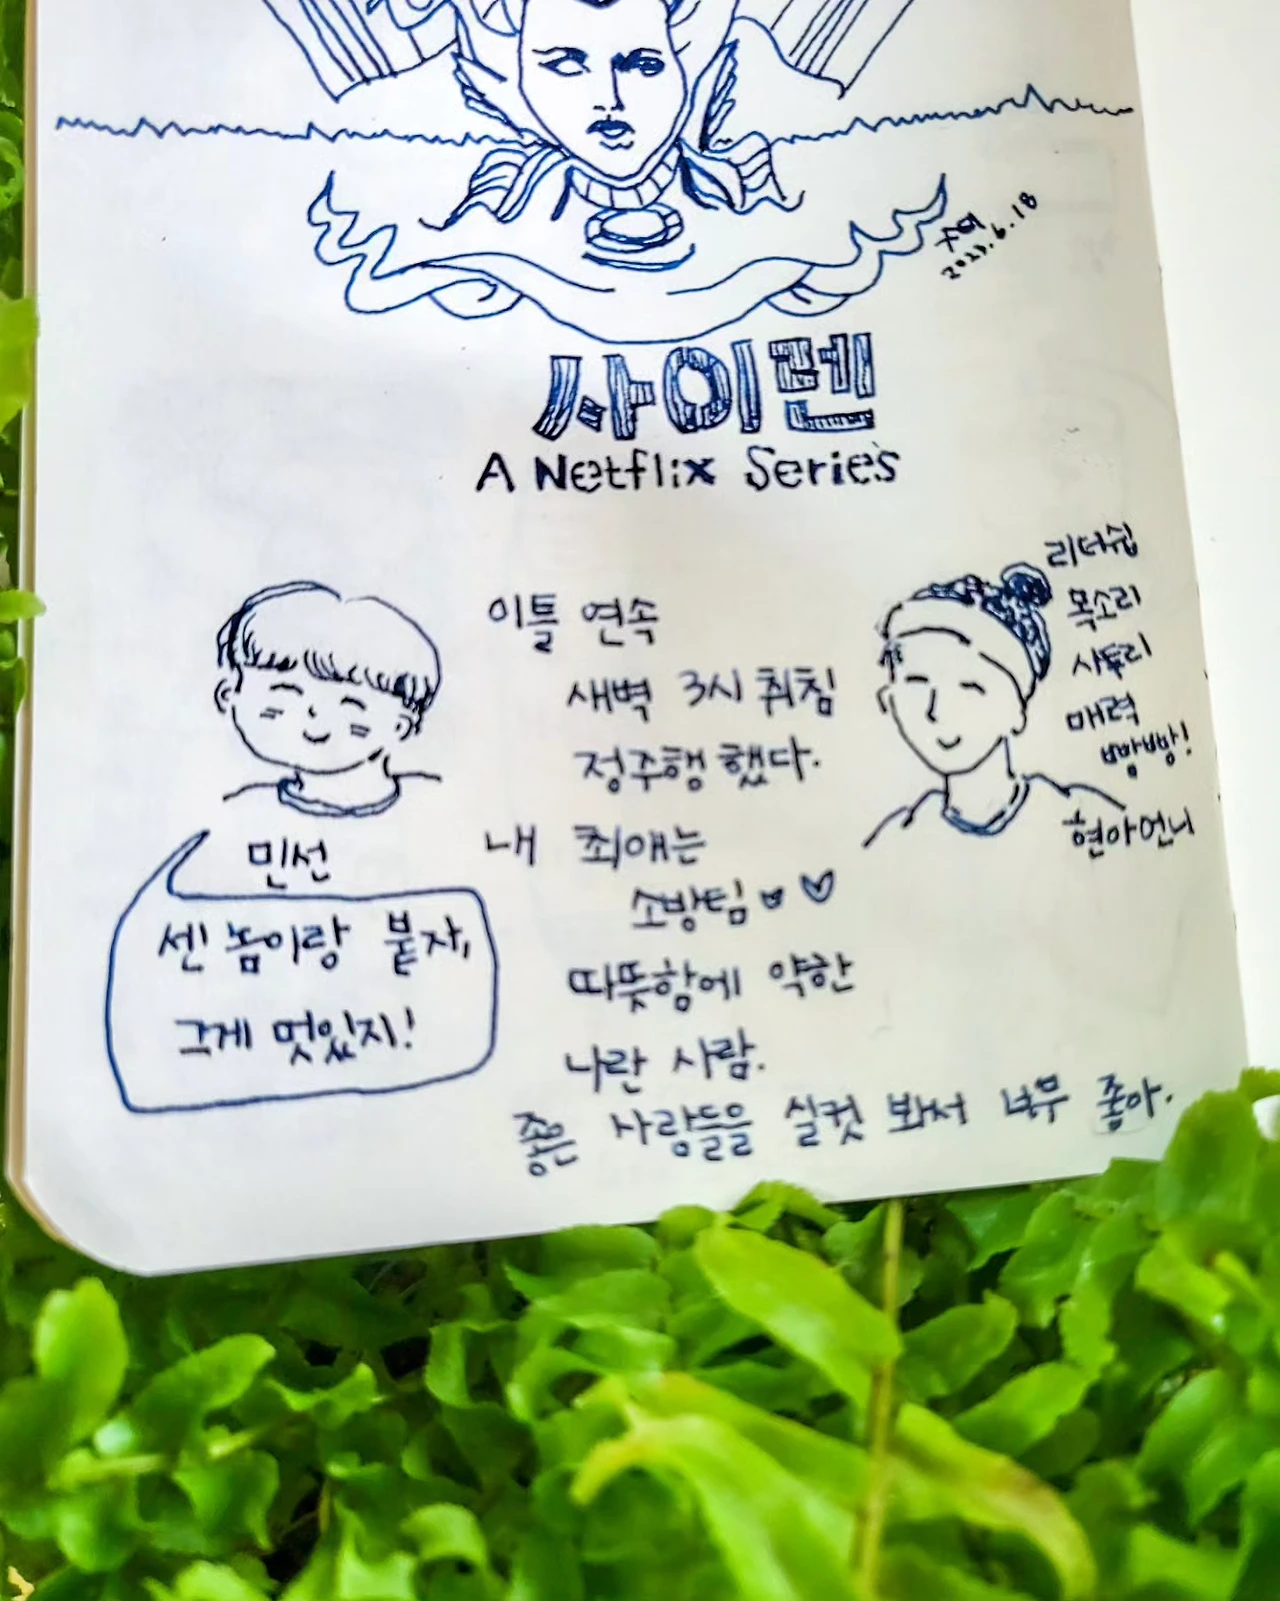 2023.6.18
사이렌
A Netflix Series
이틀 연속
새벽 3시 취침
정주행 했다.
내 최애는
소방팀
따뜻함에 약한
나란 사람.
좋은 사람들을 실컷 봐서 너무 좋아.
민선
센 놈이랑 붙자,
그게 멋있지!
리더쉽
목소리
사투리
매력
빵빵!
현아언니